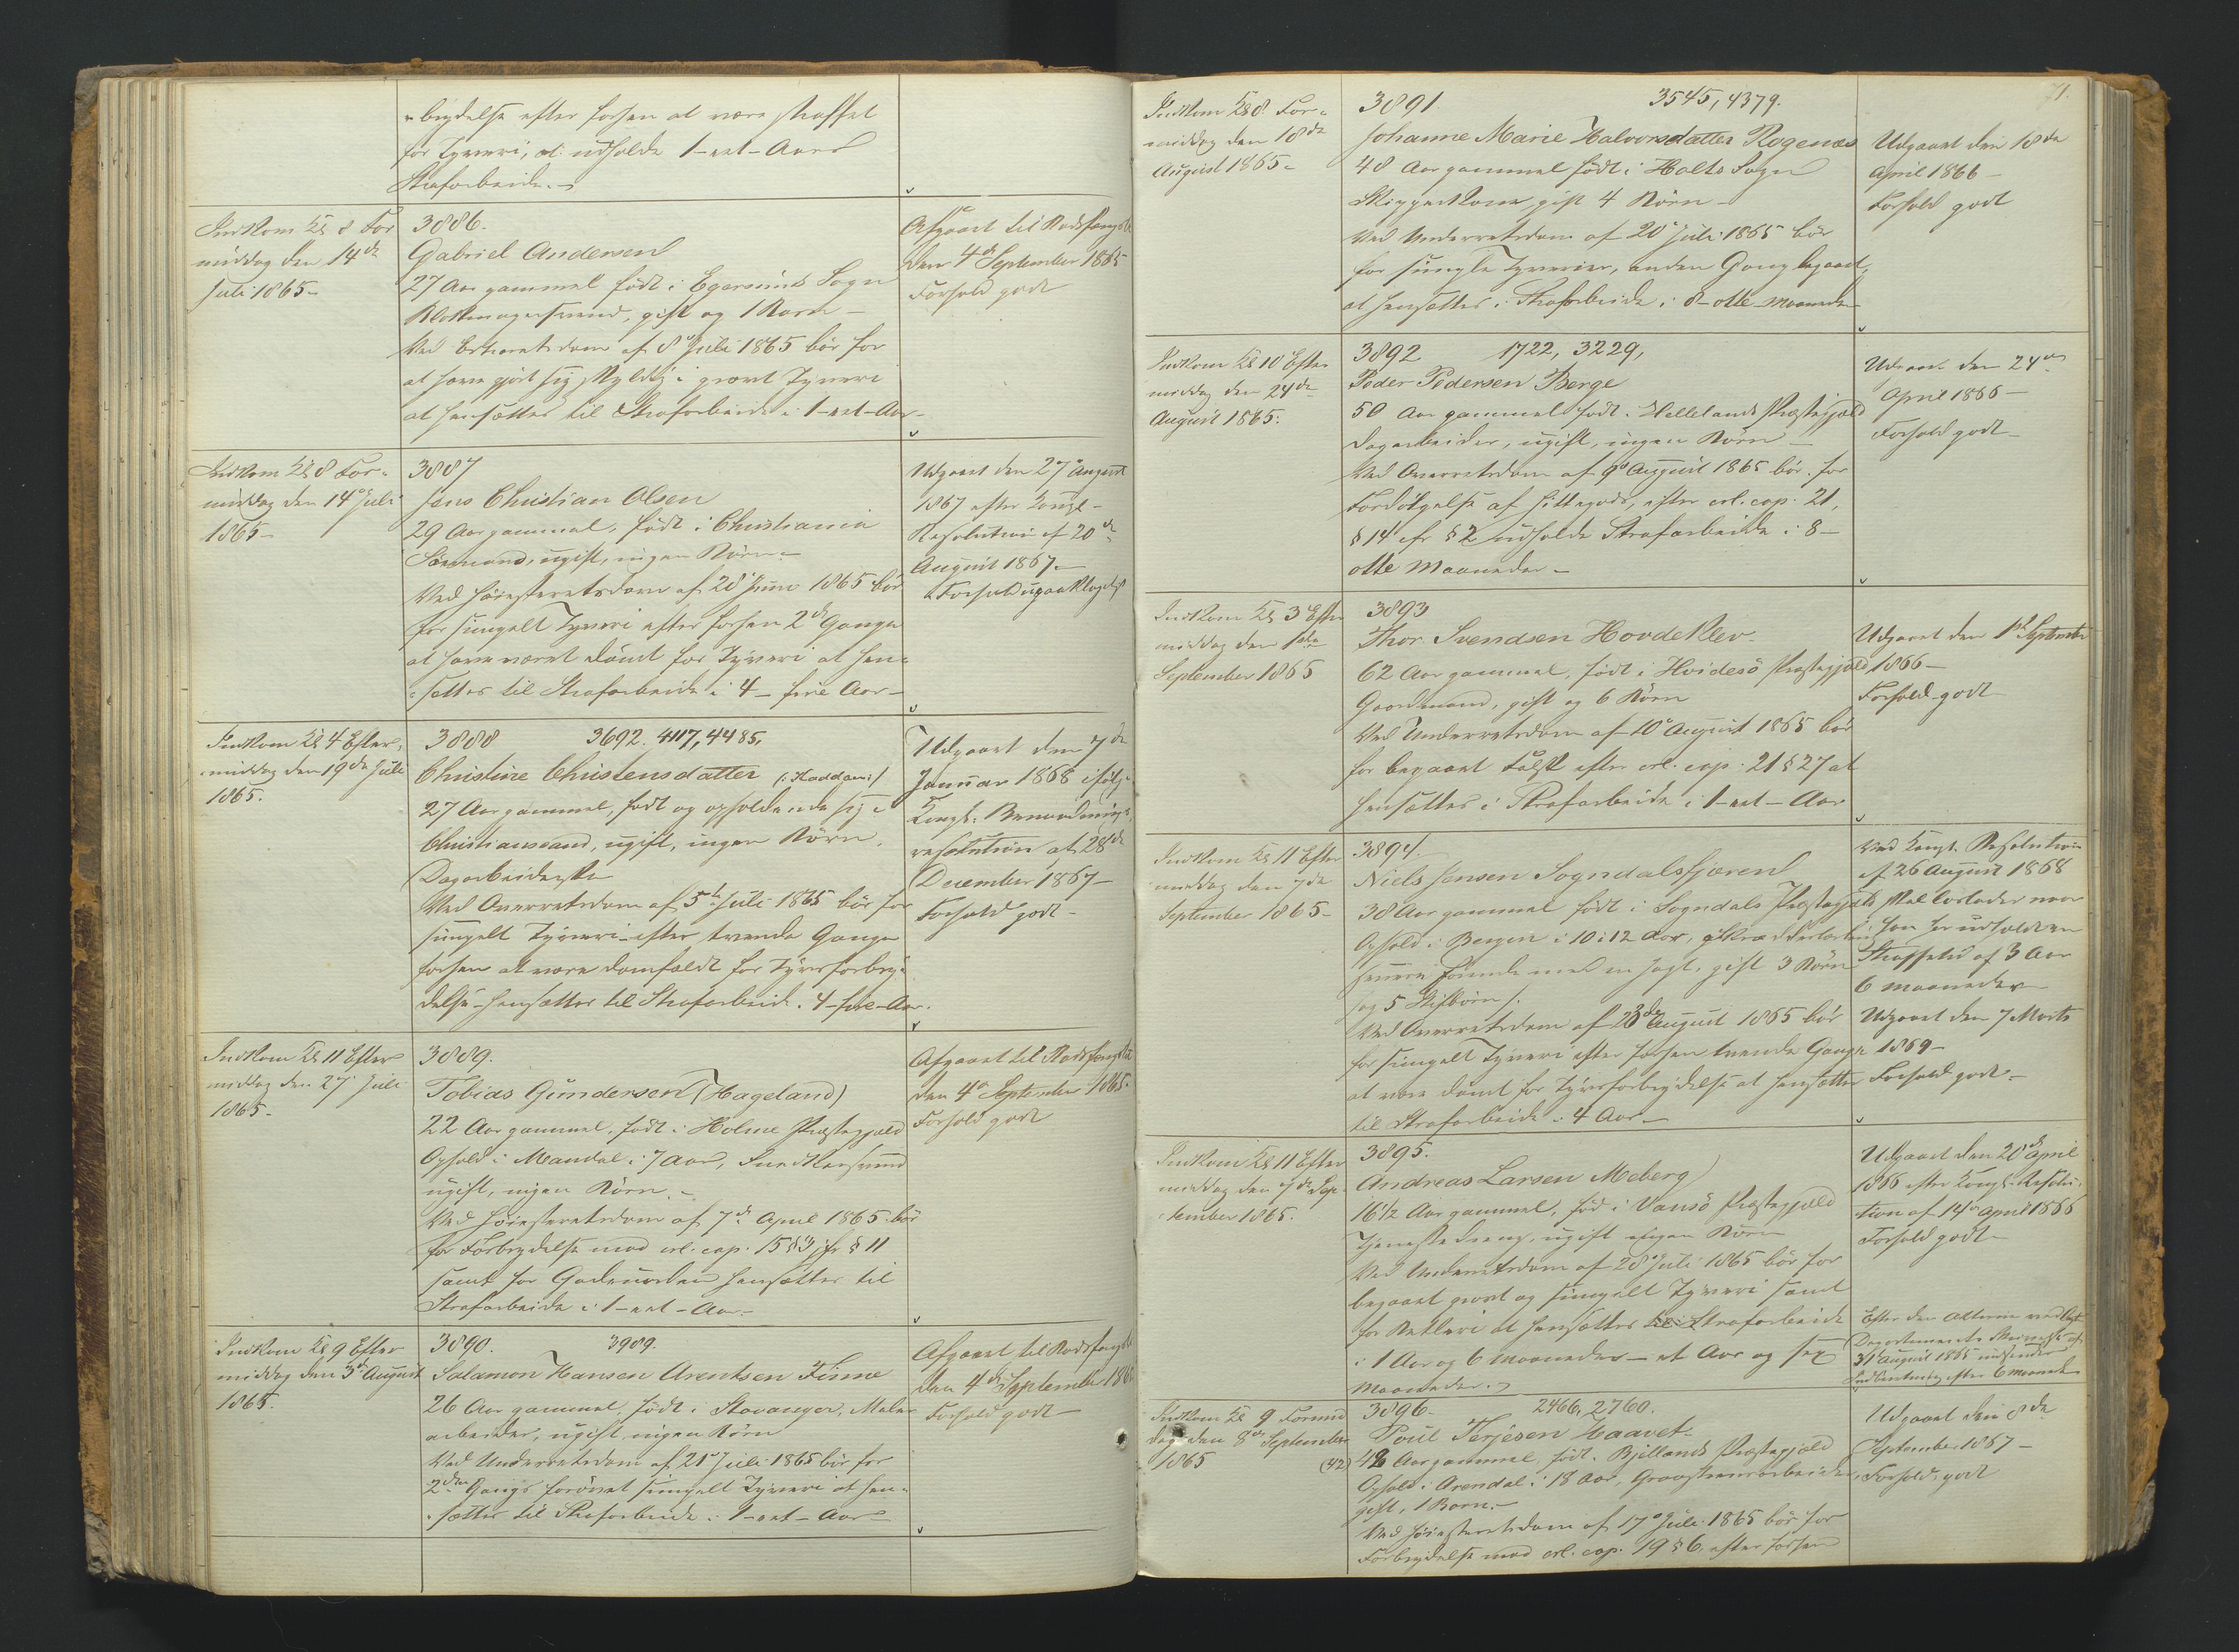 brydelse efter forhen at være straffet
for Tyveri, at udholde 1 - eet - Aars
Strafarbeide. -
Indkom Kl 8 For
middag den 14de
Juli 1865 -
3886.
Gabriel Andersen
27 Aar gammel født i Egersunds Sogn
Blokmagersvend, gift og 1 Barn -
Ved Extraretsdom af 8de Juli 1865 bør for
at have gjort sig skyldig i grovt Tyveri
at hensættes til Strafarbeide i 1 - eet - Aar -
Afgaaet til Bodsfængslet
den 4de September 1865
Forhold godt
Indkom Kl 8 For-
middag den 14de Juli
1865 -
3887
Jens Christian Olsen
29 Aar gammel, født i Christiania
Sømand, ugift, ingen Børn -
Ved Høiesteretsdom af 28de Juni 1865 bør
for simpelt Tyveri efter forhen 2de Gange
at have været dømt for Tyveri at hen-
sættes til Strafarbeide i 4 - fire Aar -
Udgaaet den 27de August
1867 efter Kongl -
Resolution af 20de
August 1867. -
Forhold upaaklageligt
Indkom Kl 4 Efter-
middag den 19de Juli
1865.
3888 3692. 4117, 4485.
Christine Christensdatter (: Kaddan :)
27 Aar gammel, født og opholdende sig i
Christianssand, ugift, ingen Børn.
Dagarbeiderske
Ved Overretsdom af 5te Juli 1865 bør for
simpelt Tyveri - efter tvende Gange
forhen at være domfældt for Tyvsforbry-
delse - hensættes til Strafarbeide i 4 - fire - Aar.
Udgaaet den 7de
Januar 1868 ifølge
Kongl: Benaadnings-
resolution af 28de
December 1867 -
Forhold godt -
Indkom Kl 11 Efter
middag den 27 Juli
1865 -
3889.
Tobias Gundersen (Hageland)
22 Aar gammel, født i Holme Præstegjæld
Ophold i Mandal i 7 Aar, Snedkersvend
ugift, ingen Børn. -
Ved Høiesteretsdom af 7de April 1865 bør
for Forbrydelse mod crl. cap. 15 § 3 jfr § 11
samt for Gadeuorden hensættes til
Strafarbeide i 1 - eet - Aar -
Afgaaet til Bodsfængslet
den 4de September 1865.
Forhold godt
Indkom Kl 9 Efter
middag den 3de August
1865.
3890. 3989.
Salamon Hansen Arentsen Finne
26 Aar gammel, født i Stavanger, Maler
arbeider, ugift, ingen Børn
Ved Underretsdom af 21de Juli 1865 bør for
2den Gangs forøvet simpelt Tyveri at hen-
sættes til Strafarbeide i 1 - eet - Aar -
Afgaaet til Bodsfængslet
den 4de September 1865
Forhold godt -
71.
Indkom Kl 8 For-
middag den 18de
August 1865 -
3891. 3545, 4379.
Johanne Marie Halvorsdatter Rogenæs
48 Aar gammel født i Holts Sogn
Skipperkone gift 4 Børn -
Ved Underretsdom af 20de Juli 1865 bør
for simple Tyverier, anden Gang begaaet,
at hensættes i Strafarbeide i 8 - otte - Maaneder
Udgaaet den 18de
April 1866 -
Forhold godt
Indkom Kl 10 Efter
middag den 24de
August 1865.
3892 1722, 3229,
Peder Pedersen Berge
50 Aar gammel født i Hellelands Præstegjæld
Dagarbeider, ugift, ingen Børn -
Ved Overretsdom af 9de August 1865 bør for
Fordølgelse af Hittegods, efter crl. cap. 21,
§ 14 cfr § 2 udholde Strafarbeide i 8 -
otte Maaneder -
Udgaaet den 24de
April 1866 -
Forhold godt -
Indkom Kl 3 Efter
middag den 1ste
September 1865
3893
Thor Svendsen Hovdeklev
62 Aar gammel, født i Hvidesø Præstegjæld
Gaardmand, gift og 6 Børn
Ved Underretsdom af 10de August 1865 bør
for begaaet Falsk efter crl. cap. 21 § 27 at
hensættes i Strafarbeide i 1 - eet - Aar
Udgaaet den 1ste September
1866 -
Forhold godt
Indkom Kl 11 Efter
middag den 7de
September 1865 -
3894.
Niels Jensen Sogndalsfjæren
38 Aar gammel født i Sogndals Præstegjæld
Ophold i Bergen i 10 i 12 Aar,
senere farende med en Jagt, gift 3 Børn
og 5 Stifbørn/.
Ved Overretsdom af 23de August 1865 bør
for simpelt Tyveri efter forhen tvende Gange
at være dømt for Tyvsforbrydelse at hensættes
til Strafarbeide i 4 Aar -
Ved Kongl. Resolution
af 26 August 1868
skal løslades naar
han har udholdt en
Straffetid af 3 Aar
6 Maaneder
Udgaaet den 7 Marts
1869 -
Forhold godt -
Indkom Kl 11 Efter
middag den 7de Sep-
tember 1865.
3895.
Andreas Larsen Meberg
16 1/2 Aar gammel, fød i Vansø Præstegjæld
Tjenestedreng, ugift ingen Børn
Ved Underretsdom af 28de Juli 1865 bør for
begaaet grovt og simpelt Tyveri samt
for Betleri at hensættes til Strafarbeide
i 1 Aar og 6 Maaneder - et Aar og sex
Maaneder. -
Udgaaet den 20de April
1866 efter Kongl: Resolu-
tion af 14de April 1866
Forhold godt -
Efter den Akterne vedlagt
Departements Skrivelse af
31te August 1865 indsendes
Indberetning efter 6 Maaneder
Indkom Kl 9 Formid
dag den 8de September
1865
3896. 2466, 2760.
Poul Terjesen Haavet
(42) 48 Aar gammel, født i Bjellands Præstegjæld
Ophold i Arendal i 18 Aar, Graastensarbeider,
gift, 1 Barn. -
Ved Høiesteretsdom af 17de Juli 1865 bør for
Forbrydelse mod crl. cap. 19 § 6 efter forhen
Udgaaet den 8de
September 1867 -
Forhold godt